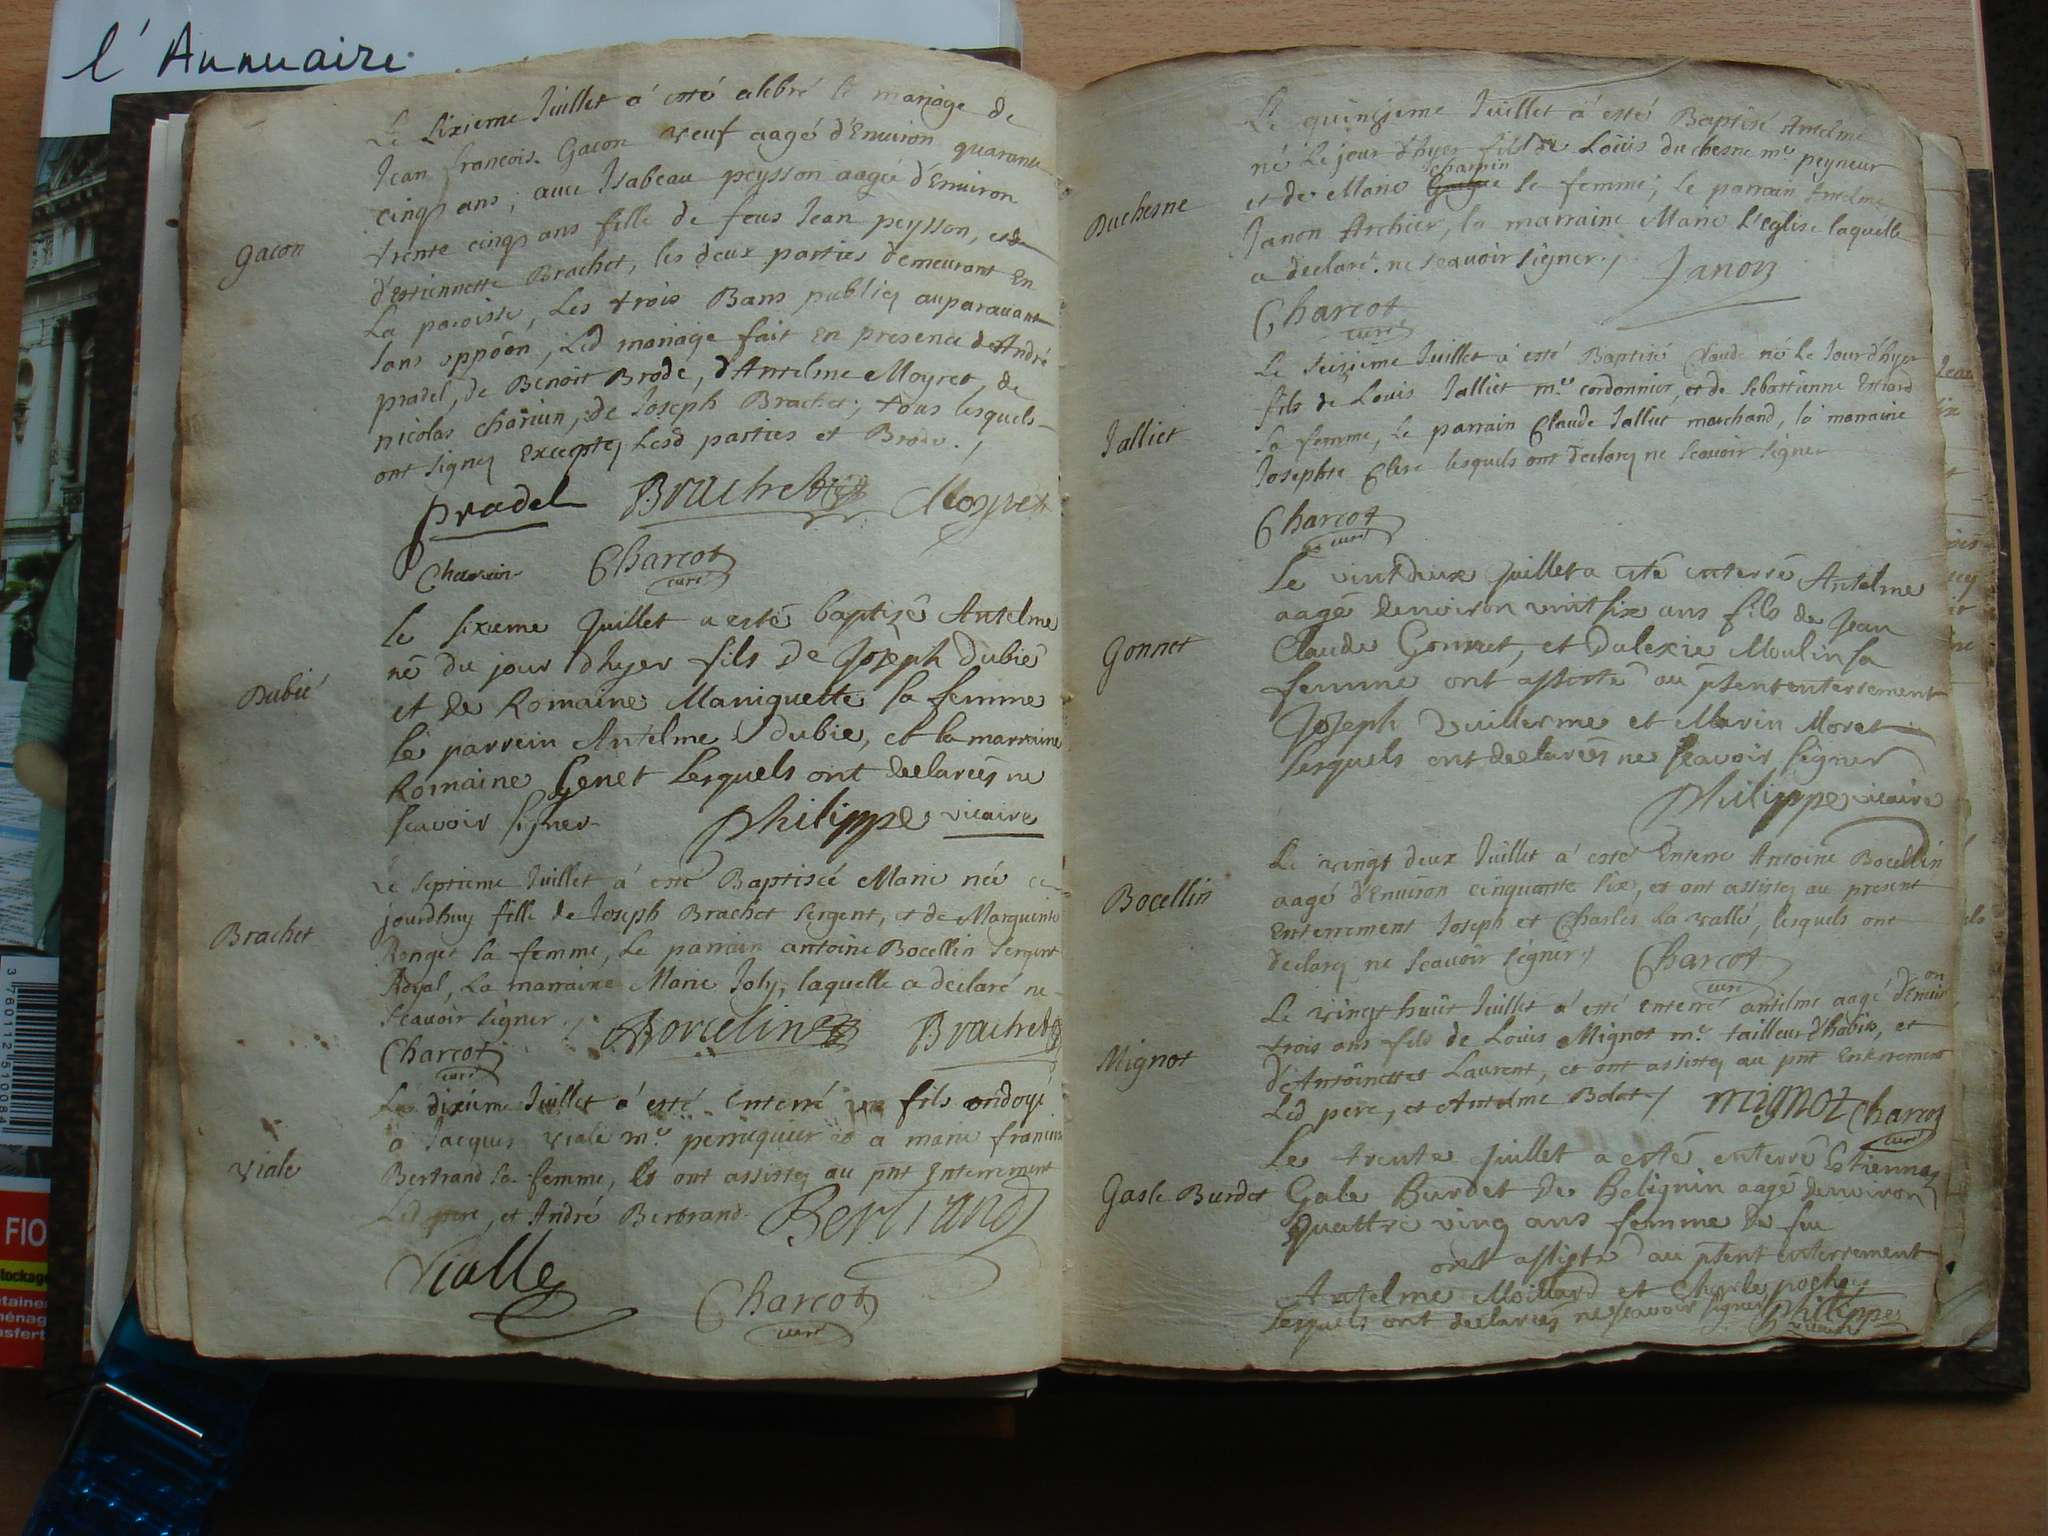 l'Annuaire
Gacon
Le sixieme Juillet a esté celebré le mariage de
Jean francois Gacon veuf aagé d'Environ quarante
cinq ans, avec Isabeau peysson aagée d'Environ
trente cinq ans fille de feus Jean peysson, et de
d'Estiennette Brachet, les deux parties demeurant En
La paroisse, Les trois Bans publiez auparavant
sans oppôon, Led mariage fait En presence de André
pradel, de Benoit Brode, d'Antelme Moyret, de
nicolas charuin, de Joseph Brachet, tous lesquels
ont signez Exceptez Lesd parties et Brode.
Pradel Brachet Moyret
Charuin Charcot
curé
Dubié
le sixieme Juillet a esté baptisé Antelme
né du jour d'hyer fils de Joseph Dubié
et de Romaine Maniguette sa femme
le parrein Antelme Dubie, et la marraine
Romaine Genet Lesquels ont declarés ne
scavoir signer Philippe vicaire
Brachet
Le septieme Juillet a esté Baptisée Marie née ce
jourdhuy fille de Joseph Brachet sergent, et de Marguerite
Ronget sa femme, Le parrain antoine Bocellin sergent
Royal, La marraine Marie Joly, laquelle a declaré ne
scavoir signer
Charcot Borcelin Brachet
curé
Viale
Le dixieme Juillet a esté Enterré un fils ondoyé
a Jacques viale me perruquier et a marie francoise
Bertrand sa femme, Et ont assistez au pnt Enterrement
Led pere, et André Bertrand. Bertrand
Vialle
Charcot
curé
Duchesne
Le quinzieme Juillet a esté Baptisé Antelme
né Le jour d'hyer fils de Loüis duchesne me peyneur
charpin
et de Marie sa femme, Le parrain Antelme
Janon Archier, la marraine Marie L'eglise laquelle
a declaré ne scavoir signer. Janon
Charcot
curé
Jalliet
Le seizieme Juillet a esté Baptisé Claude né Le Jour d'hyer
fils de Louis Jalliet me cordonnier, et de Sebastienne Estard
sa femme, Le parrain Claude Jalliet marchand, la marraine
Josephte Clere lesquels ont declarez ne scavoir signer
Charcot
curé
Gonnet
Le vintdeux Juillet a esté enterré Antelme
aagé denviron vint six ans fils de Jean
Claude Gonnet, et Dalexie Moulin sa
femme ont assisté au pñtent enterrement
Joseph Vuillerme et Marin Moret
lesquels ont declarés ne scavoir signer
Philippe vicaire
Bocellin
Le vingt deux Juillet a esté Enterré Antoine Bocellin
aagé d'Environ cinquante six, et ont assistez au present
Enterrement Joseph et Charles La vallé, lesquels ont
declarez ne scavoir signer. Charcot
curé
Mignot
on
Le vingt huit Juillet a esté enterré antelme aagé d'Envir
trois ans fils de Louis Mignot me tailleur d'habits, et
d'Antoinette Laurent, et ont assistez au pnt Enterrement
Led pere, et Antelme Bolot. mignot Charcot
curé
Gasle Burdet
Le trente Juillet a esté enterré Estienna
Gale Burdet de Belignin aagé denviron
quattre ving ans femme de feu
ont assisté au pñtent enterrement
Antelme Moillard et Charle pochoy
lesquels ont declarés ne scavoir signer Philippe
vicaire
3 760112 510084
FIO